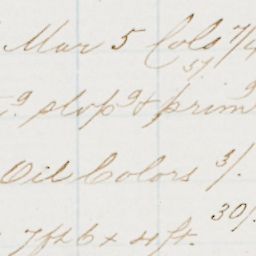 Mar 5 Cols 7/
57
slop9 & prim9
Oil Colors 3/.
30/.
7ft 6 x 4 ft.